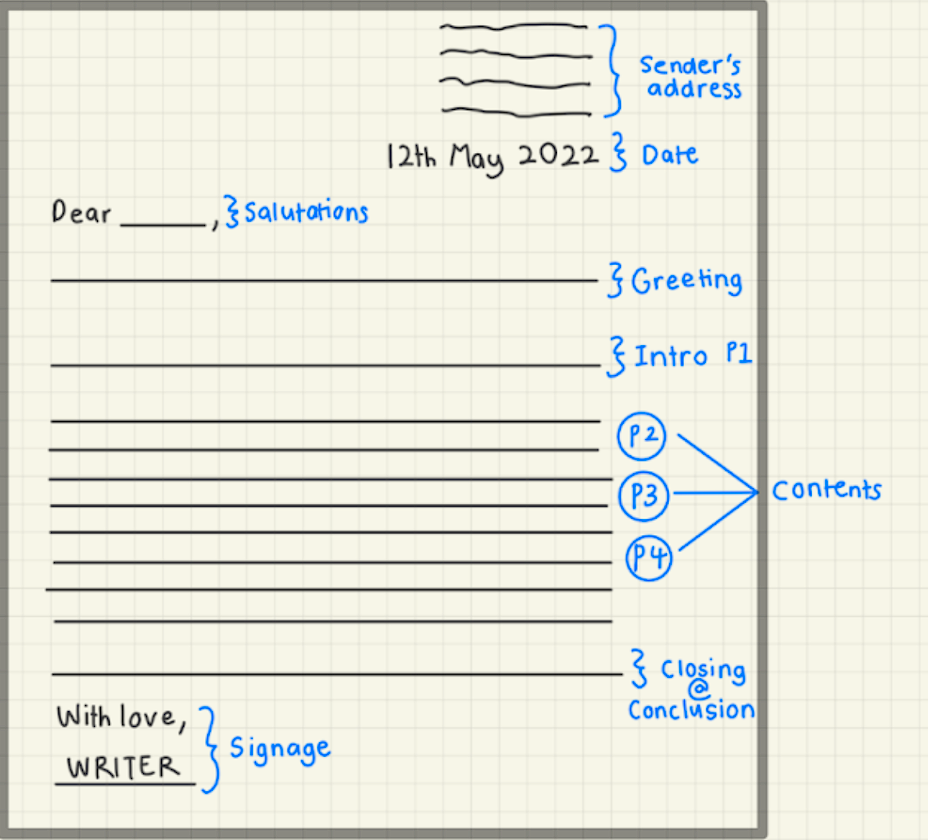 Sender's
address
12th May 2022 Date
Dear ______, Salutations
Greeting
Intro P1
P2
P3
Contents
P4
Closing
@
Conclusion
With love,
Signage
WRITER